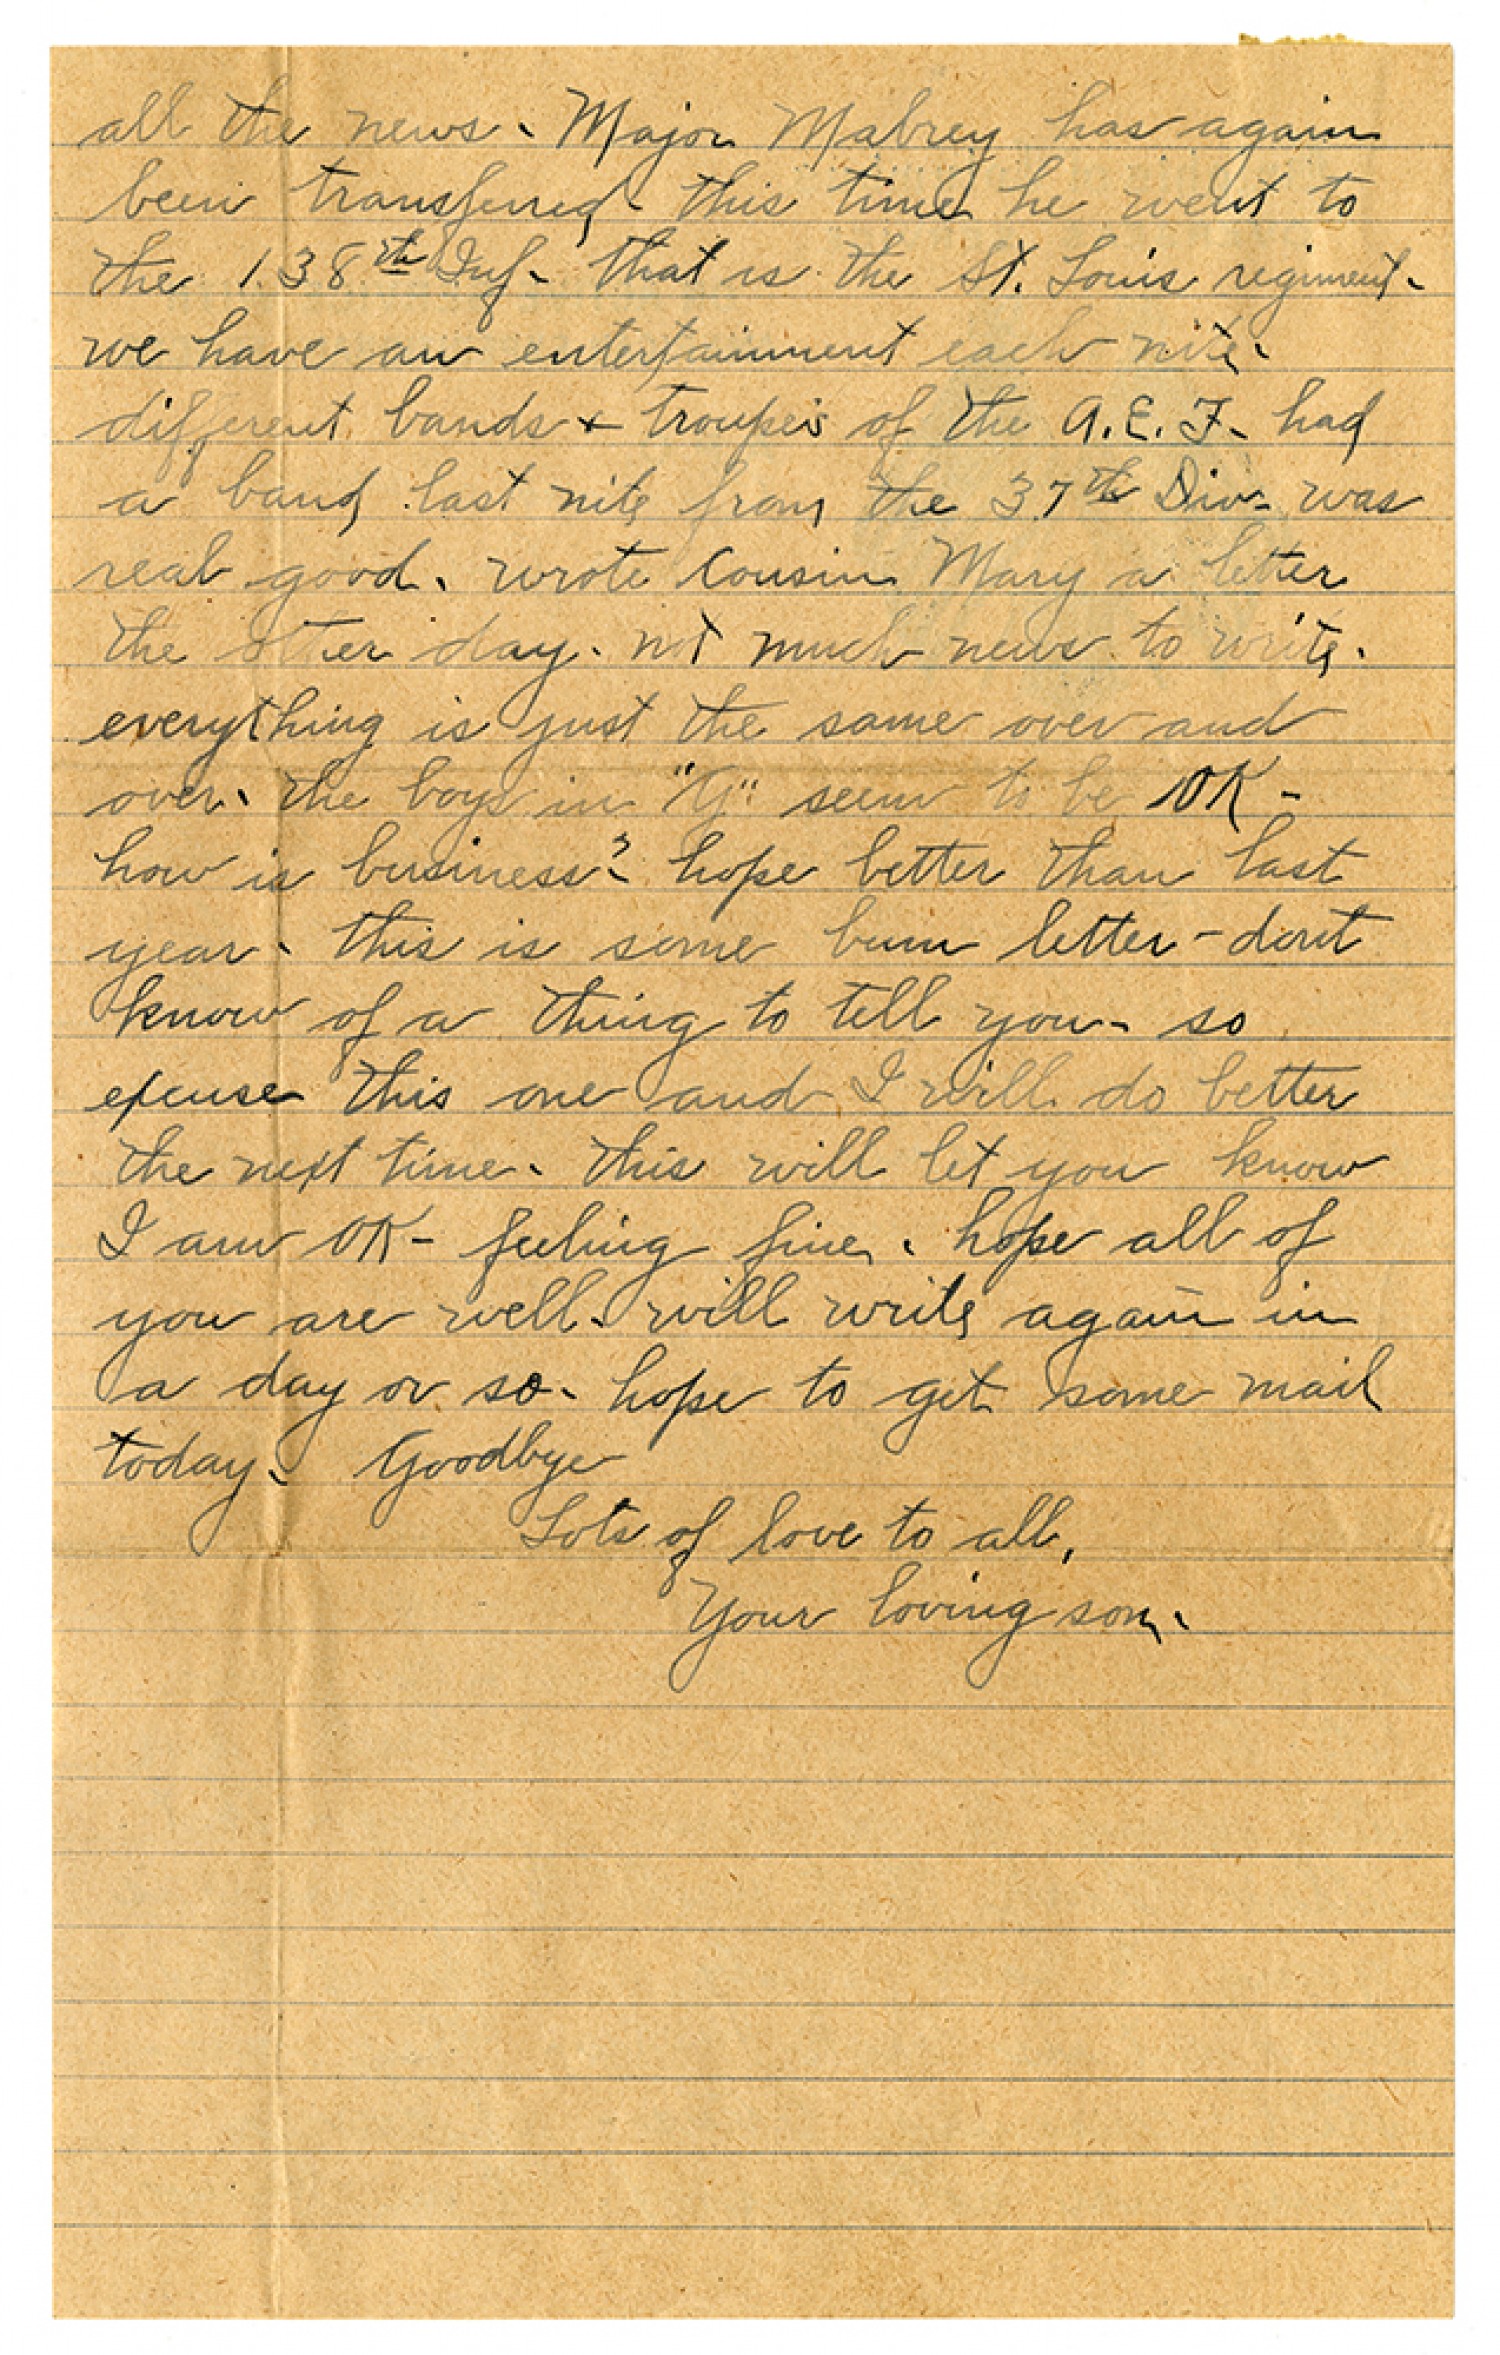 all the news. Major Mabrey has again
been transferred. this time he went to
the 138th Inf. that is the St. Louis regiment.
we have an entertainment each nite.
different bands + troupes of the A.E.F. had
a band last nite from the 37th Div. was
real good. wrote Cousin Mary a letter
the other day. not much news to write.
everything is just the same over and
over. the boys in "G" seem to be OK -
how is business? hope better than last
year. this is some bum letter - dont
know of a thing to tell you - so
excuse this one and I will do better
the next time. this will let you know
I am OK - feeling fine. hope all of
you are well. will write again in
a day or so. hope to get some mail
today. Goodbye
Lots of love to all,
Your loving son.